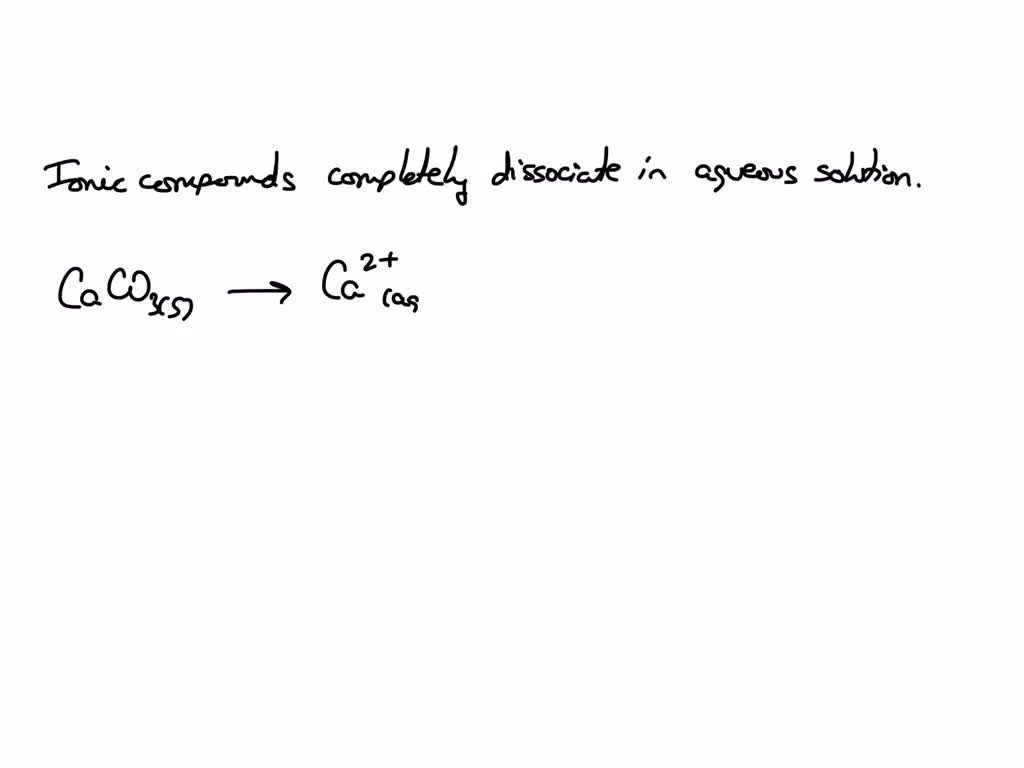 Ionic compounds completely dissociate in aqueous solution.
CaCO₃(s) → Ca²⁺(aq